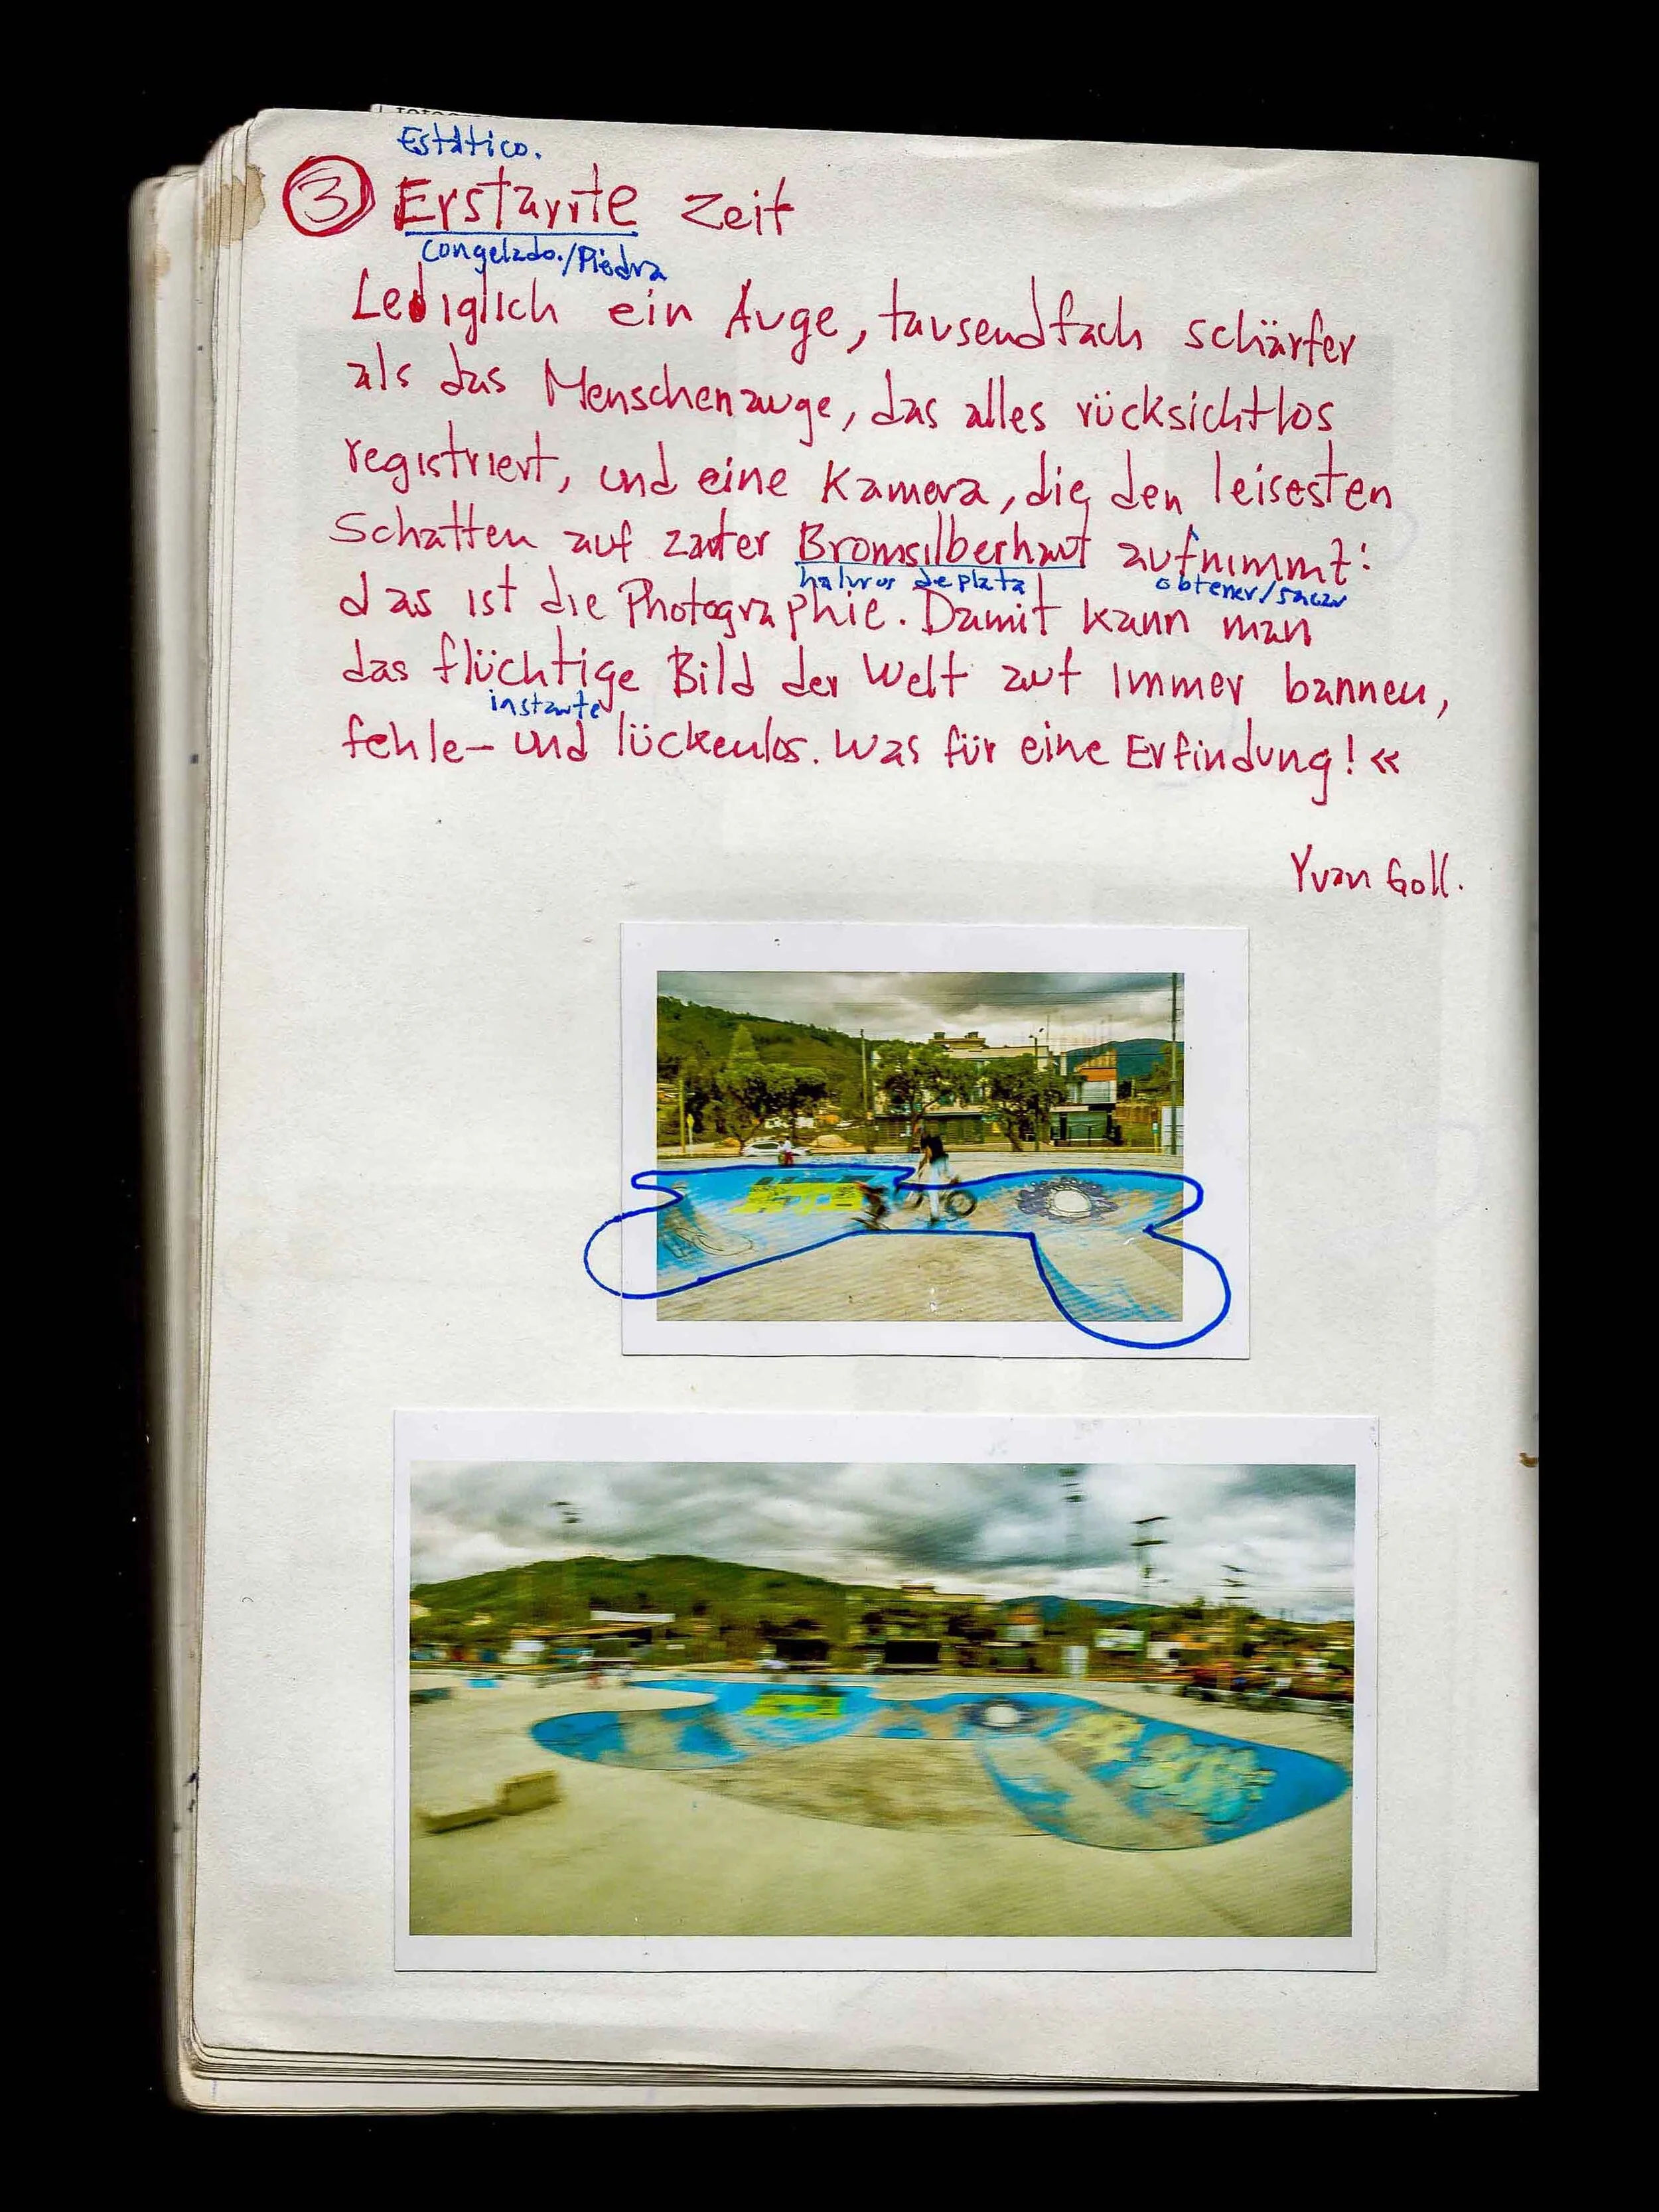 Estático.
③ Erstarrte Zeit
congelado./Piedra
Lediglich ein Auge, tausendfach schärfer
als das Menschenauge, das alles rücksichtlos
registriert, und eine Kamera, die den leisesten
Schatten auf zarter Bromsilberhaut aufnimmt:
haluros de plata obtener/sacar
das ist die Photographie. Damit kann man
das flüchtige Bild der Welt auf immer bannen,
instante
fehle- und lückenlos. Was für eine Erfindung! «
Yvan Goll.